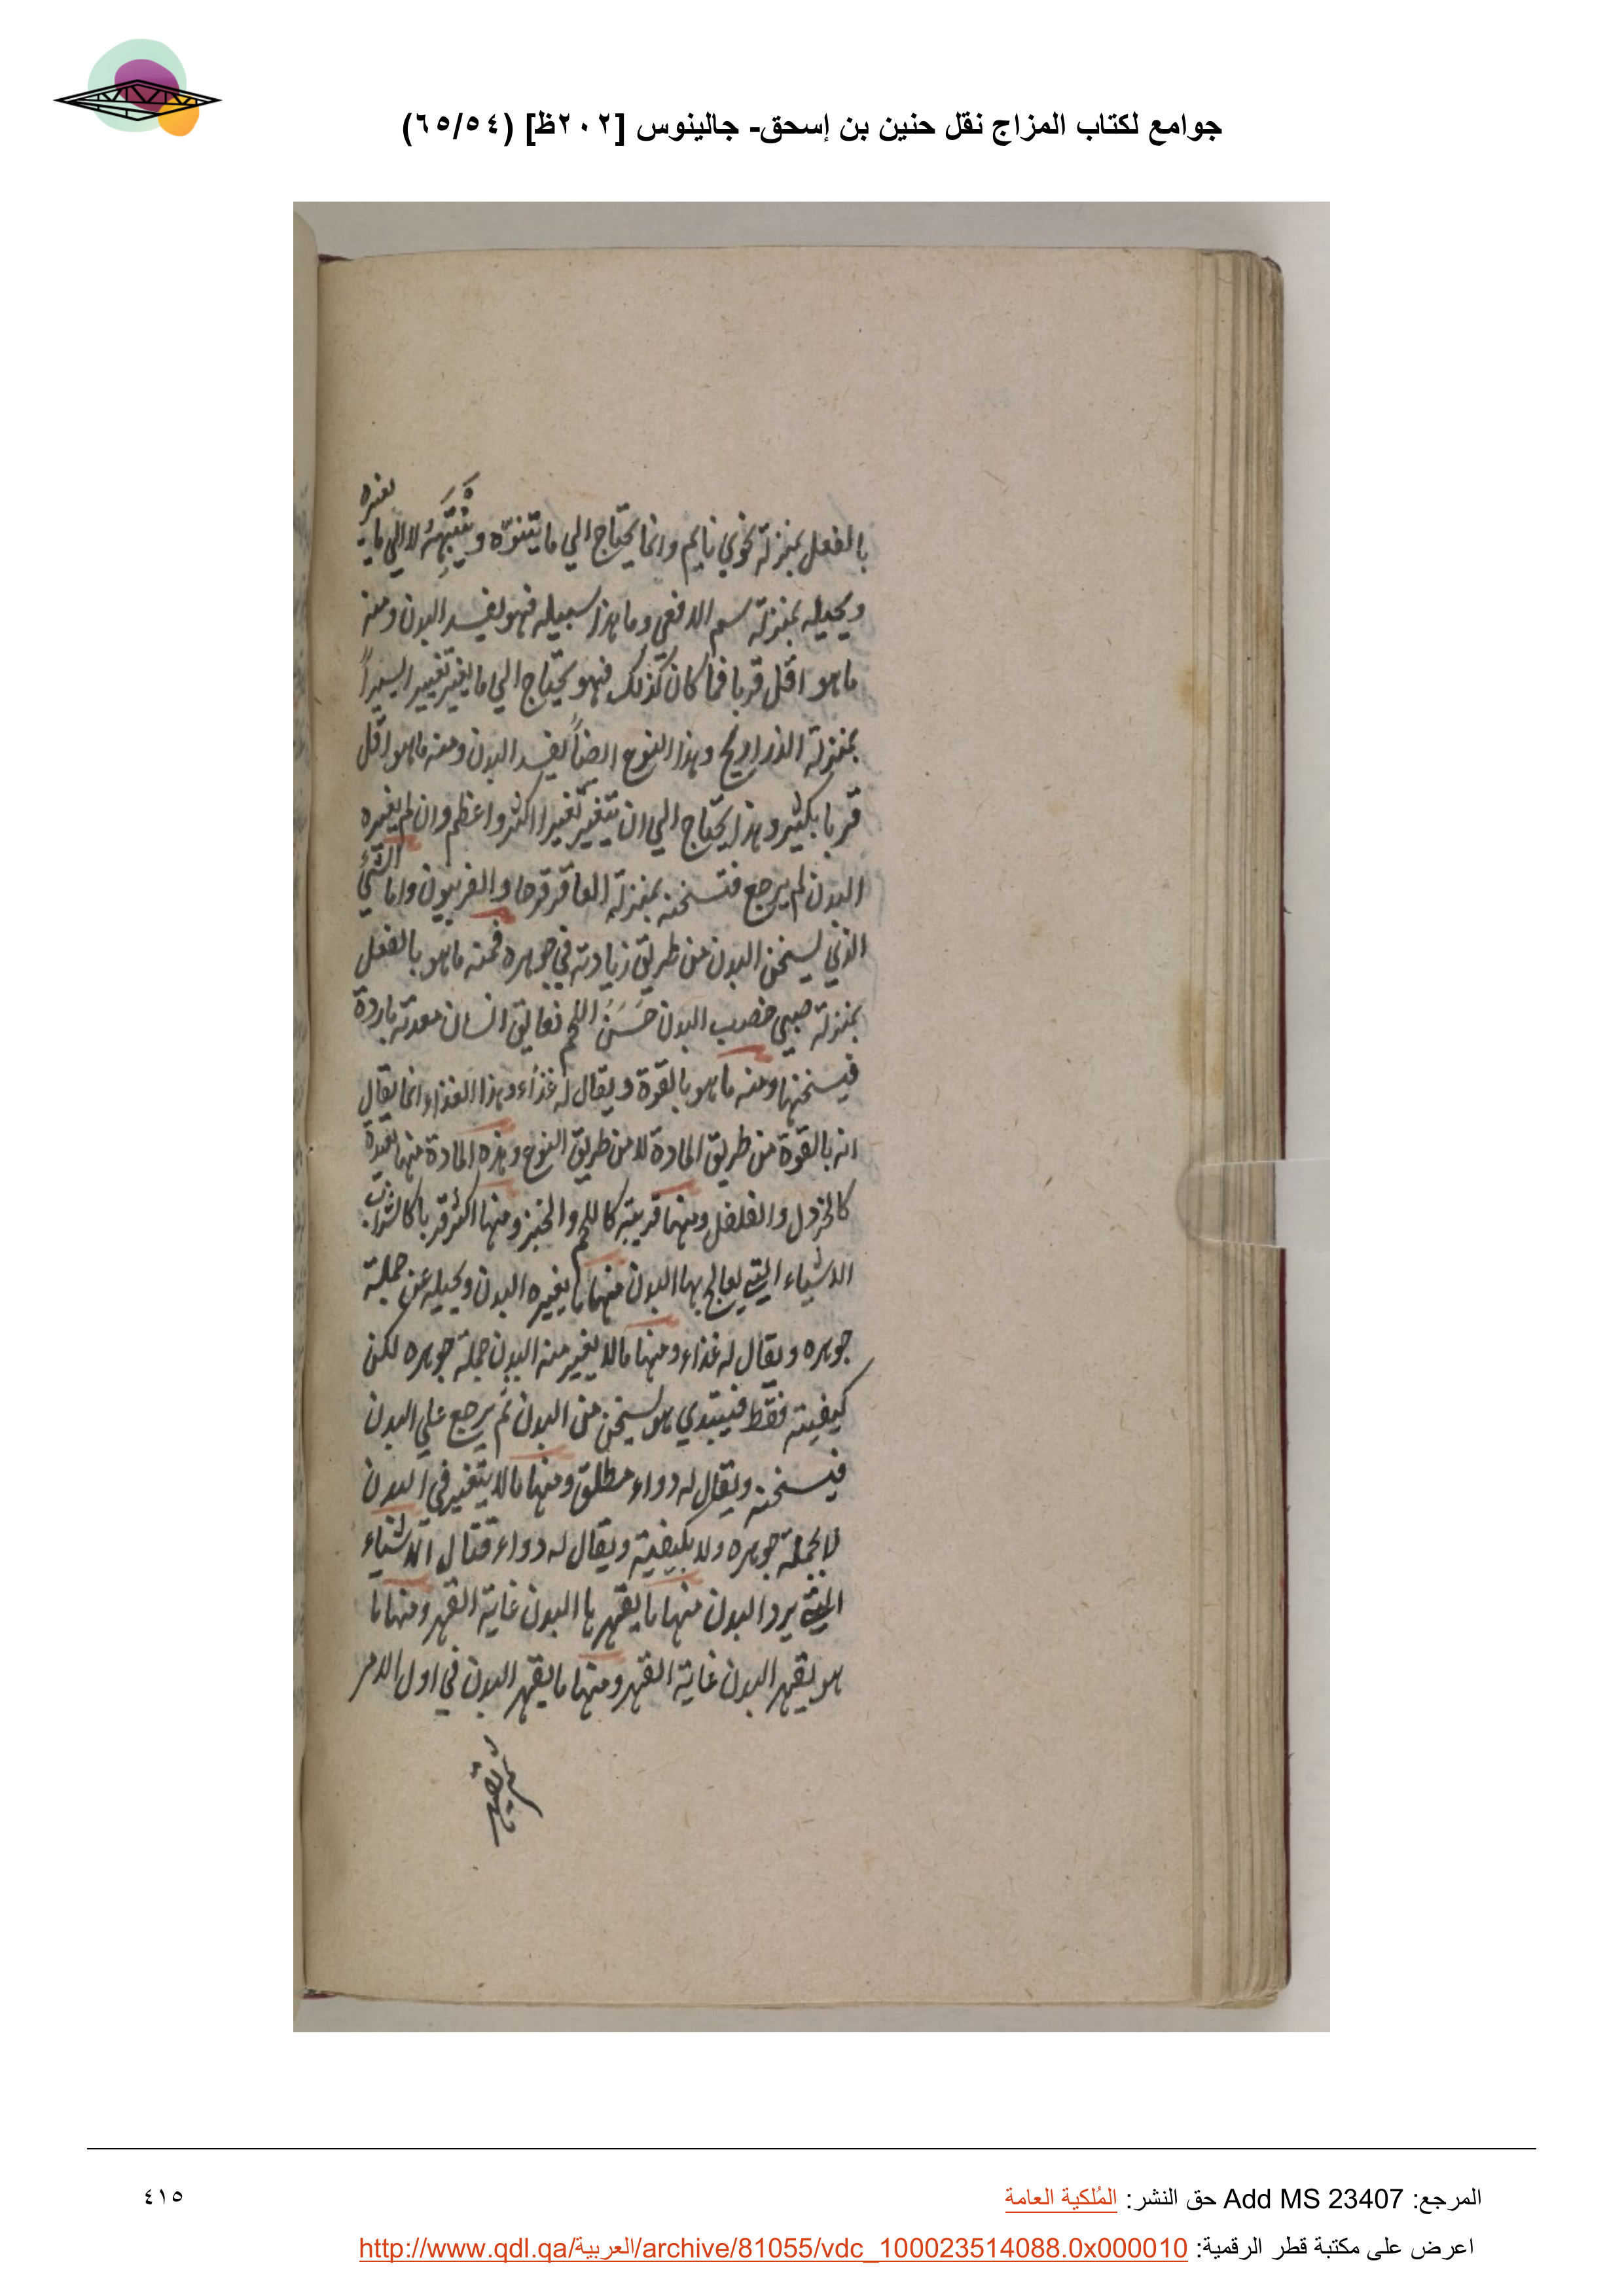 جوامع لكتاب المزاج نقل حنين بن إسحق- جالينوس [٢٠٢ظ] (٦٥/٥٤)
بالفعل بمنزلة نحوي نايم وانما يحتاج الي ما وينبهه لا الي ما يغيره
ويحيله بمنزلة سم الافعي وما هذا سبيله فهو يفسد البدن ومنه
ما هو اقل قربا فما كان كذلك فهو يحتاج الي ما يغير تغييرا يسيراً
بمنزلة الذراريح وهذا النوع ايضاً يفسد البدن ومنه ما هو اقل
قربا بكثير وهذا يحتاج الي ان يتغير تغيرا اكثر واعظم وان لم يغيره
البدن لم يرجع فتسخنه بمنزلة العاقرقرحا والفربيون واما الشيء
الذي يسخن البدن عن طريق زيادته في جوهره فمنه ما هو بالفعل
بمنزلة صبي خصب البدن حَسَن اللحم تعانق انسان معدته باردة
فيسخنها ومنه ما هو بالقوة ويقال له غذاء وهذا الغذاء انما يقال
انه بالقوة من طريق المادة لا من طريق النوع وهذه المادة منها بعيدة
كالخردل والفلفل ومنها قريبة كاللحم والخبز ومنها اكثر قربا كالشراب
الاشياء التي يعالج بها البدن منها ما يغيره البدن ويحيله عن جملة
جوهره ويقال له غذاء ومنها ما لا يغير منه البدن جملة جوهره لكن
كيفيته فقط فيبتدي هو يسخن من البدن ثم يرجع علي البدن
فيسخنه ويقال له دواء مطلق ومنها ما لا يتغير في البدن
لا بجملة جوهره ولا بكيفية ويقال له دواء قتال الاشياء
التي يرد البدن منها ما يقهرها البدن غاية القهر ومنها ما
هو يقهر البدن غاية القهر ومنها ما يقهر البدن في اول الامر
المرجع: Add MS 23407 حق النشر: المُلكية العامة
٤١٥
اعرض على مكتبة قطر الرقمية: http://www.qdl.qa/العربية/archive/81055/vdc_100023514088.0x000010